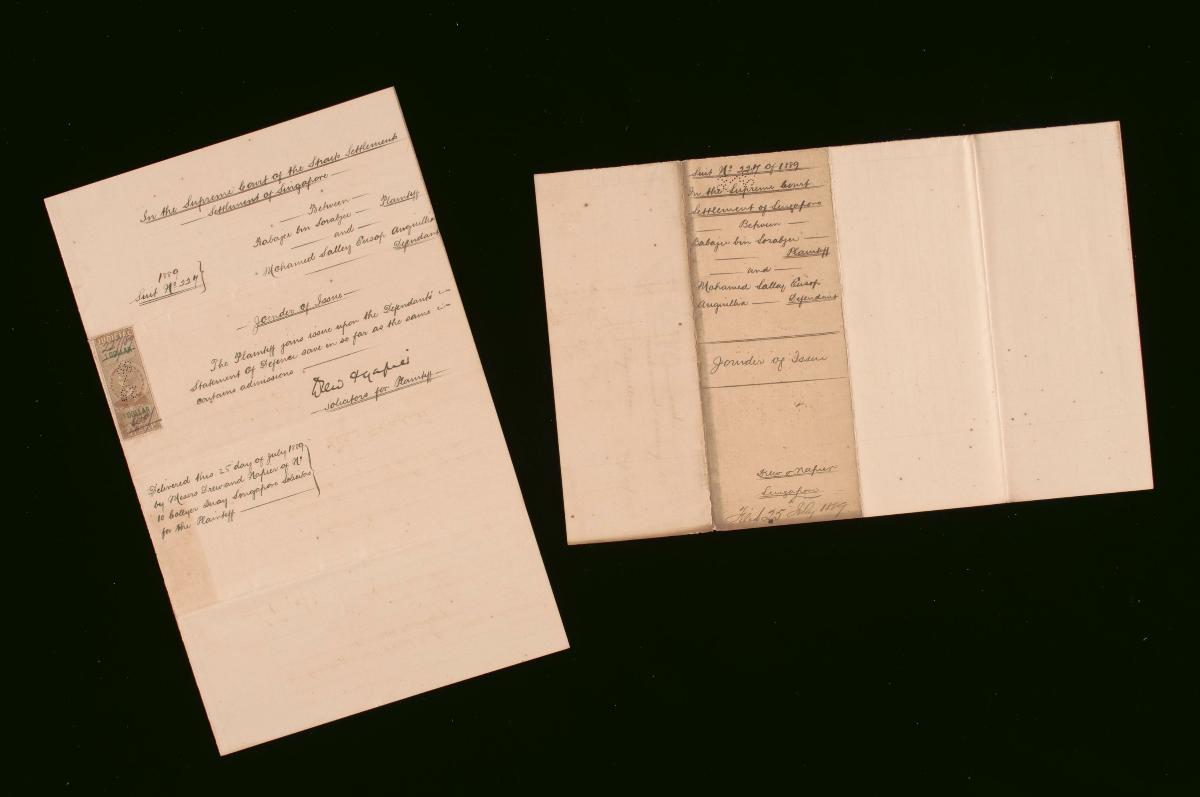 In the Supreme Court of the Straits Settlements
Settlement of Singapore
Between
Babajee bin Sorabjee Plaintiff
and
Mohamed Salley Eusop Angullia
Defendant
1889
Suit No 227
Joinder of Issue
The Plaintiff joins issue upon the Defendants'
Statement Of Defence save in so far as the same
contains admissions
Drew & Napier
Solicitors for Plaintiff
JUDICIAL
1 DOLLAR
1 DOLLAR
Delivered this 25 day of July 1889
by Messrs Drew and Napier of No
10 Collyer Quay Singapore Solicitors
for the Plaintiff
Suit No 227 Of 1889
In the Supreme Court
Settlement of Singapore
Between
Babajee bin Sorabjee
Plaintiff
and
Mohamed Salley Eusop
Angullia Defendant
Joinder of Issue
Drew & Napier
Singapore
Filed 25 July 1889